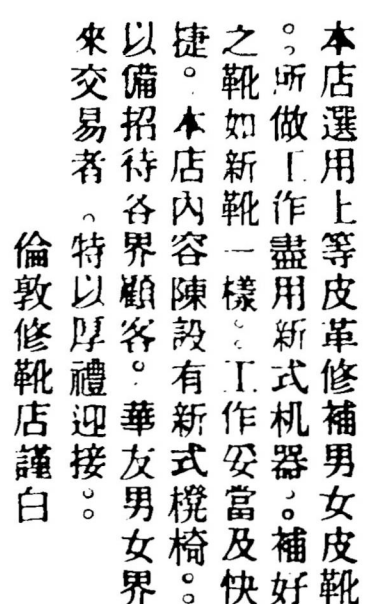 本店選用上等皮革修補男女皮靴
。所做工作盡用新式机器。補好
之靴如新靴一樣。工作妥當及快
捷。本店內容陳設有新式櫈椅。
以備招待各界顧客。華友男女界
來交易者。特以厚禮迎接。
倫敦修靴店謹白